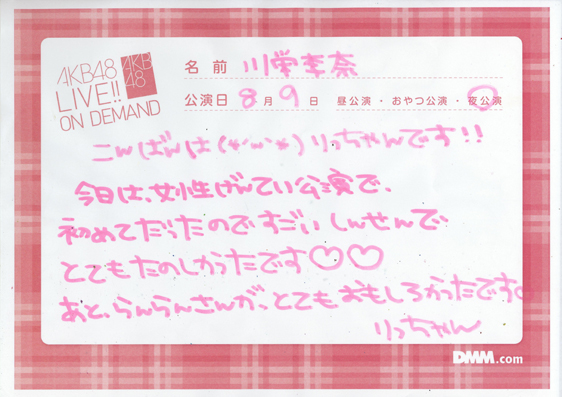 AKB48
LIVE!!
ON DEMAND
AKB
48
名前 川栄李奈
公演日 8月9日 昼公演・おやつ公演・夜公演
こんばんは(*'ω'*)りっちゃんです!!
今日は、女性げんてい公演で、
初めてだったのですごいしんせんで
とてもたのしかったです♡♡
あと、らんらんさんが、とてもおもしろかったです。
りっちゃん
DMM.com